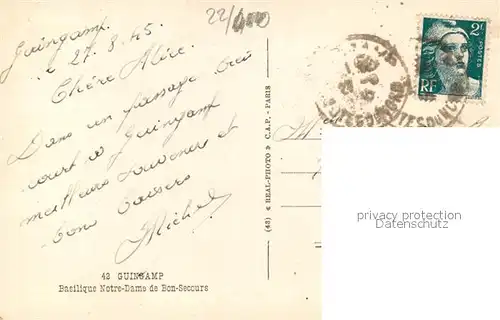 22/400
Guingamp
27.8.45
Chère Alice
Dans un passage très
court à Guingamp
meilleurs souvenirs et
bons baisers
Michel
42 GUINGAMP
Basilique Notre-Dame de Bon-Secours
(43) « REAL-PHOTO » C.A.P. - PARIS
2F
POSTES
RF
privacy protection
www.oldthing.de